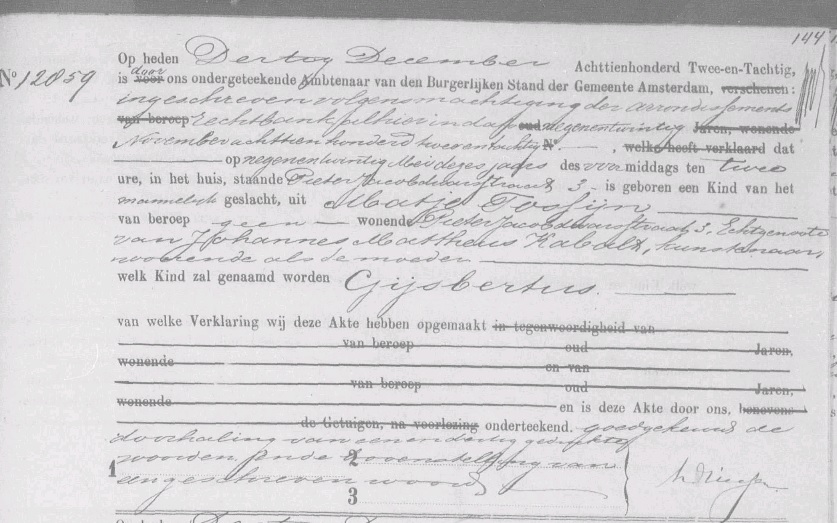 144
Op heden Dertig December Achttienhonderd Twee-en-Tachtig,
No 12859 is voor door ons ondergeteekende Ambtenaar van den Burgerlijken Stand der Gemeente Amsterdam, verschenen:
ingeschreven volgens machtiging der arrondissements
van beroep rechtbank alhier in dato oud negenentwintig Jaren, wonende
November achttienhonderd tweeentachtig No. , welke heeft verklaard dat
op negenentwintig Mei dezes jaars des voormiddags ten twee
ure, in het huis, staande Pieter Jacobdwarsstraat 3, is geboren een Kind van het
mannelijk geslacht, uit Maatje
van beroep geen wonende Pieter Jacobdwarsstraat 3, Echtgenoote
van Johannes Mattheus Kabelt, kunstenaar,
wonende als de moeder
welk Kind zal genaamd worden Gijsbertus.
van welke Verklaring wij deze Akte hebben opgemaakt in tegenwoordigheid van
van beroep oud Jaren,
wonende en van
van beroep oud Jaren,
wonende en is deze Akte door ons, benevens
de Getuigen, na voorlezing onderteekend. goedgekeurd de
doorhaling van eenendertig gedrukte
woorden en de bovenstelling van
1 een geschreven woord 2
3